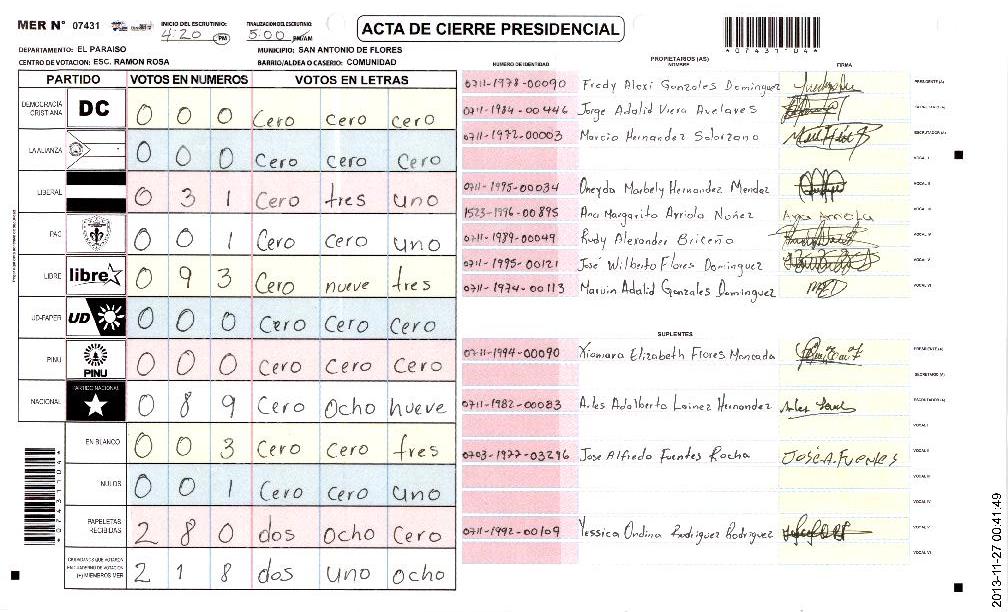 MER N° 07431
INICIO DEL ESCRUTINIO:
4:20 PM
FINALIZACION DEL ESCRUTINIO:
5:00 PM/AM
ACTA DE CIERRE PRESIDENCIAL
*07431104*
DEPARTAMENTO: EL PARAISO
MUNICIPIO: SAN ANTONIO DE FLORES
CENTRO DE VOTACION: ESC. RAMON ROSA
BARRIO/ALDEA O CASERIO: COMUNIDAD
PARTIDO VOTOS EN NUMEROS VOTOS EN LETRAS
DEMOCRACIA CRISTIANA DC 0 0 0 Cero cero cero
LA ALIANZA 0 0 0 Cero cero Cero
LIBERAL 0 3 1 Cero tres uno
PAC 0 0 1 Cero Cero uno
LIBRE libre 0 9 3 Cero nueve tres
UD-FAPER UD 0 0 0 Cero Cero Cero
PINU PINU 0 0 0 Cero Cero Cero
NACIONAL PARTIDO NACIONAL 0 8 9 Cero Ocho nueve
EN BLANCO 0 0 3 Cero Cero tres
NULOS 0 0 1 Cero Cero uno
PAPELETAS RECIBIDAS 2 8 0 dos Ocho Cero
CIUDADANOS QUE VOTARON EN CUADERNO DE VOTACION (+) MIEMBROS MER 2 1 8 dos uno ocho
*07431104*
PROPIETARIOS (AS)
NUMERO DE IDENTIDAD NOMBRE FIRMA
0711-1978-00090 Fredy Alexi Gonzales Dominguez PRESIDENTE (A)
0711-1984-00446 Jorge Adalid Viera Avelares SECRETARIO (A)
0711-1972-00003 Marcio Hernandez Solorzano ESCRUTADOR (A)
VOCAL I
0711-1995-00034 Oneyda Marbely Hernandez Mendez VOCAL II
1523-1996-00895 Ana Margarita Arriola Nuñez Ana Arriola VOCAL III
0711-1989-00049 Rudy Alexander Briceño VOCAL IV
0711-1995-00121 José Wilberto Flores Dominguez VOCAL V
0711-1974-00113 Marvin Adalid Gonzales Dominguez VOCAL VI
SUPLENTES
0711-1994-00090 Xiomara Elizabeth Flores Moncada PRESIDENTE (A)
SECRETARIO (A)
0711-1982-00083 Arles Adalberto Lainez Hernandez ESCRUTADOR (A)
VOCAL I
0703-1977-03296 Jose Alfredo Fuentes Rocha JOSÉ A. FUENTES VOCAL II
VOCAL III
VOCAL IV
0711-1992-00109 Yessica Ondina Rodriguez Rodriguez VOCAL V
VOCAL VI
2013-11-27 00:41:49